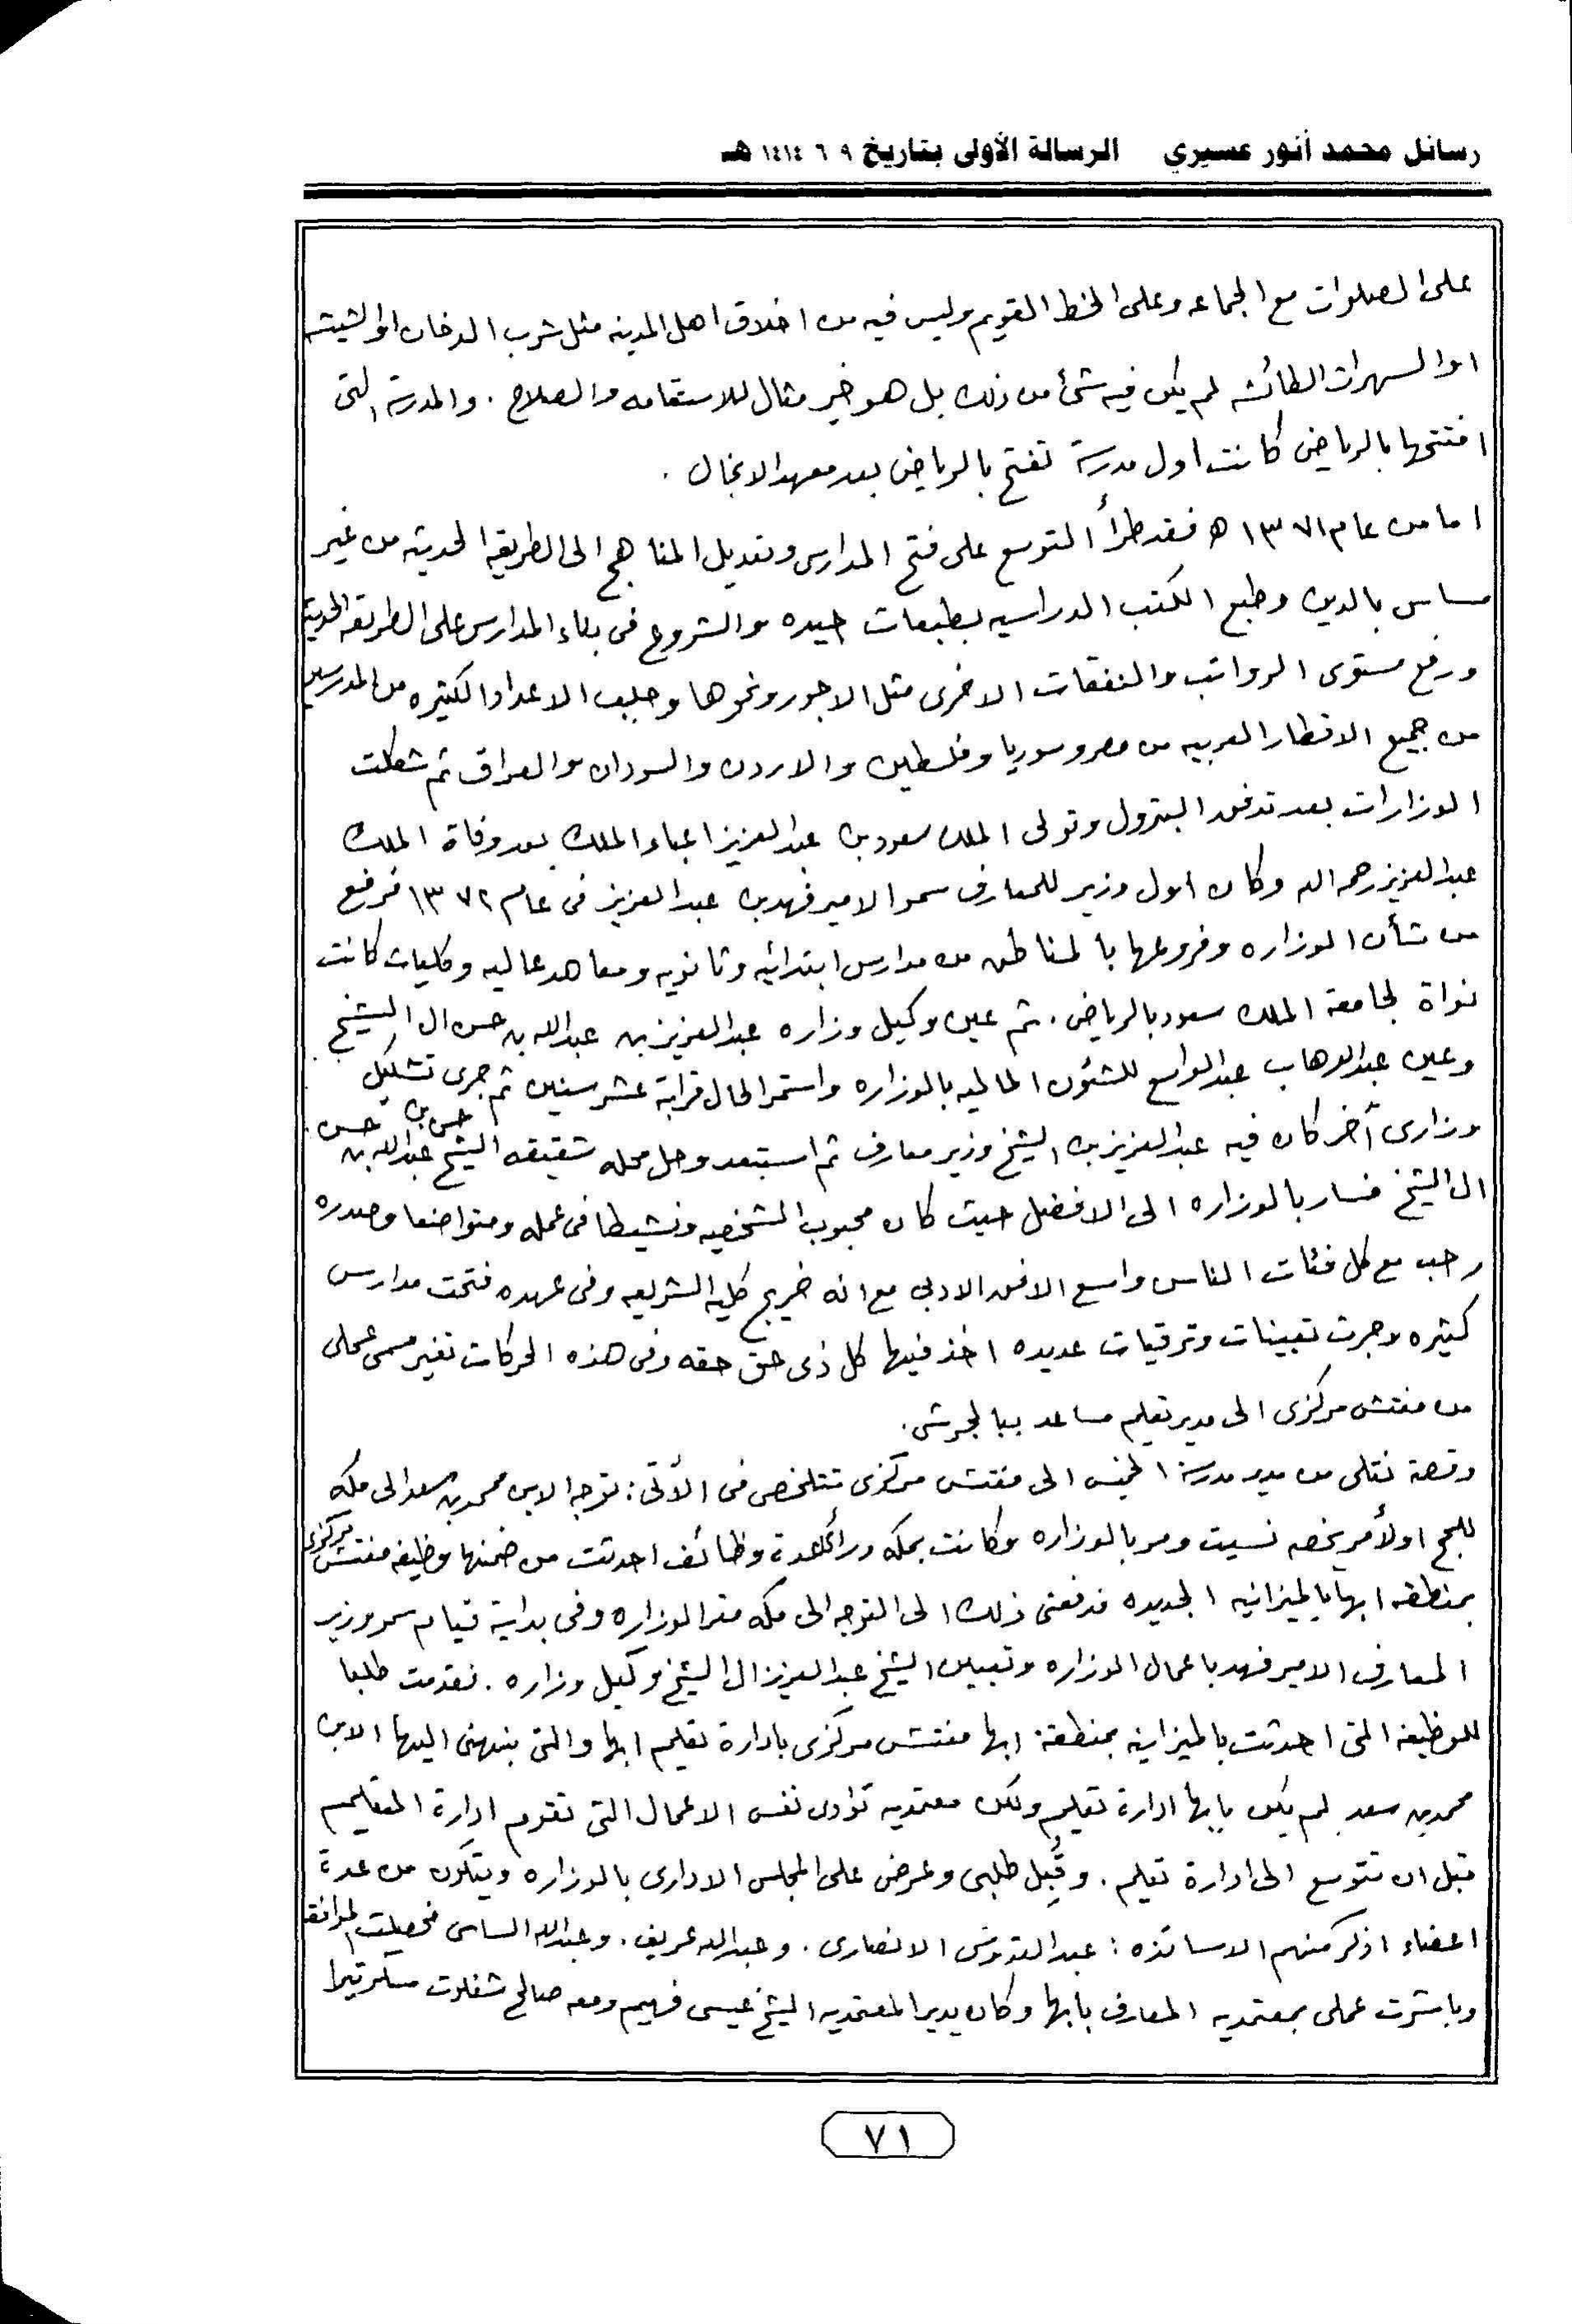 رسائل محمد أنور عسيري الرسالة الأولى بتاريخ ٩ ٦ ١٤١٤ هـ
على الصلوات مع الجماعه وعلى الخط القويم وليس فيه من اخلاق اهل المدينه مثل شرب الدخان او الشيشه
او السهرات الطائشه لم يكن فيه شئ من ذلك بل هو خير مثال للاستقامه والصلاح . والمدرسة التى
افتتحها بالرياض كانت اول مدرسة تفتح بالرياض بعد معهد الانجال .
اما من عام ١٣٧١ ه فقد طرأ التوسع على فتح المدارس وتعديل المناهج الى الطريقه الحديثه من غير
مساس بالدين وطبع الكتب الدراسيه بطبعات جيده والشروع فى بناء المدارس على الطريقه الحديثه
ورفع مستوى الرواتب والنفقات الاخرى مثل الاجور ونحوها وجلب الاعداد الكثيره من المدرسين
من جميع الاقطار العربيه من مصر وسوريا وفلسطين والاردن والسودان والعراق ثم شكلت
الوزارات بعد تدفق البترول وتولى الملك سعود بن عبدالعزيز اعباء الملك بعد وفاة الملك
عبدالعزيز رحمه الله وكان اول وزير للمعارف سمو الامير فهد بن عبدالعزيز فى عام ١٣٧٢ فرفع
من شأن الوزاره وفروعها بالمناطق من مدارس ابتدائيه وثانويه ومعاهد عاليه وكليات كانت
نواة لجامعة الملك سعود بالرياض . ثم عين وكيل وزاره عبدالعزيز بن عبدالله بن حسن ال الشيخ .
وعين عبدالوهاب عبدالواسع للشئون الماليه بالوزاره واستمر الحال قرابة عشر سنين ثم جرى تشكيل
وزارى أخر كان فيه عبدالعزيز بن الشيخ وزير معارف ثم استبعد وحل محله شقيقه الشيخ حسن بن عبدالله بن حسن
ال الشيخ فسار بالوزاره الى الافضل حيث كان محبوب الشخصيه ونشيطا فى عمله ومتواضعا وصدره
رحب مع كل فئات الناس واسع الافق الادبى مع انه خريج كلية الشريعه وفى عهده فتحت مدارس
كثيره وجرت تعيينات وترقيات عديده اخذ فيها كل ذى حق حقه وفى هذه الحركات تغير مسمى عملى
من مفتش مركزى الى مدير تعليم مساعد ببالجرشى .
وقصة نقلى من مدير مدرسة الخميس الى مفتش مركزى تتلخص فى الأتى : توجه الابن محمد بن سعد الى مكه
للحج او لأمر يخصه نسيت ومر بالوزاره وكانت بمكه ورأى عدة وظائف احدثت من ضمنها وظيفه مفتش مركزى
بمنطقه ابها بالميزانيه الجديده فدفعنى ذلك الى التوجه الى مكه مقر الوزاره وفى بداية قيام سمو وزير
المعارف الامير فهد باعمال الوزاره وتعيين الشيخ عبدالعزيز ال الشيخ وكيل وزاره . فقدمت طلبا
للوظيفه التى احدثت بالميزانيه بمنطقة ابها مفتش مركزى بادارة تعليم ابها والتى ينبهنى اليها الابن
محمد بن سعد لم يكن بابها ادارة تعليم ولكن معتمديه تؤادى نفس الاعمال التى تقوم ادارة التعليم
قبل ان تتوسع الى ادارة تعليم . وقُبِل طلبى وعرض على المجلس الادارى بالوزاره ويتكون من عدة
اعضاء اذكر منهم الاساتذه : عبدالقدوس الانصارى . وعبدالله عريف . وعبدالله الساسى فحصلت الموافقه
وباشرت عملى بمعتمديه المعارف بابها وكان يدير المعتمديه الشيخ عيسى فهيم ومعه صالح شفلوت سكرتيرا
٧١